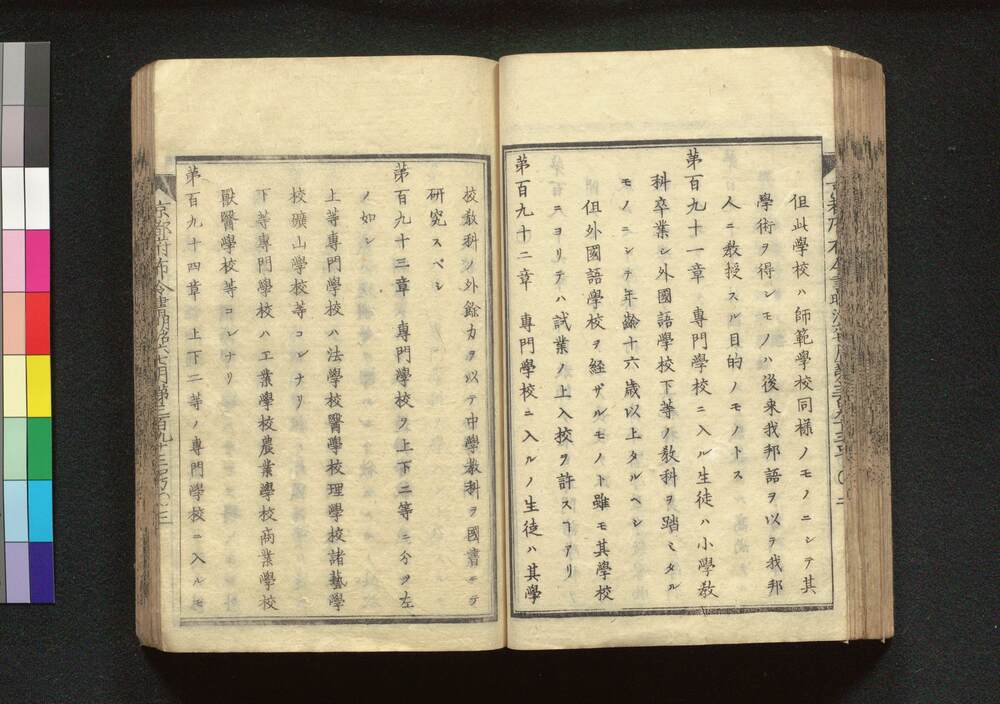 但此學校ハ師範學校同様ノモノニシテ其
學術ヲ得シモノハ後来我邦語ヲ以ヲ我邦
人ニ教授スル目的ノモノトス
第百九十一章　專門學校ニ入ル生徒ハ小學敎
科卒業シ外國語學校下等ノ敎科ヲ踏ミタル
モノニシテ年齢十六歳以上タルヘシ
但外國語學校ヲ経ザルモノト雖モ其學校
ニヨリテハ試業ノ上入挍ヲ許スヿアリ
第百九十二章　專門學校ニ入ルノ生徒ハ其學
挍敎科ノ外餘力ヲ以テ中學敎科ヲ國書ニテ
研究スベシ
第百九十三章　專門學校ヲ上下二等ニ分ヲ左
ノ如シ
上等專門學校ハ法學校醫學校理學校諸藝學
校礦山學校等コレナリ
下等專門學校ハ工業學校農業學校商業學校
獸醫學校等コレナリ
第百九十四章　上下二等ノ專門學校ニ入ルモ
京都府布令書明治六七月第二百九十三号